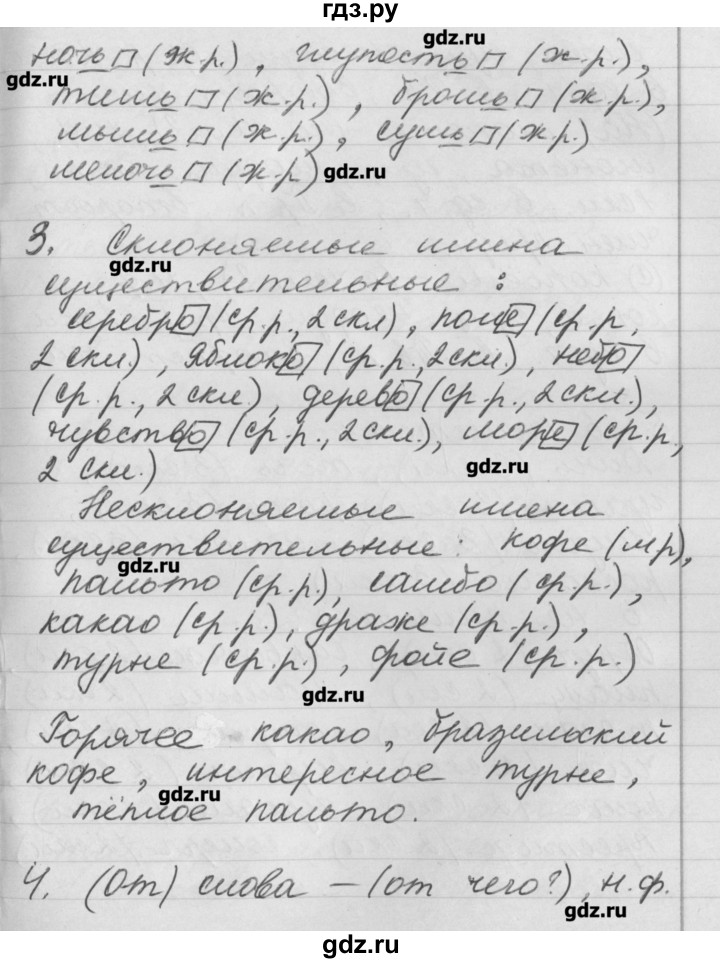 гдз.ру
gdz.ru
ночь □ (ж.р.), глупость □ (ж.р.),
gdz.ru
тишь □ (ж.р.), брошь □ (ж.р.),
мышь □ (ж.р.), сушь □ (ж.р.)
мелочь □ (ж.р.) gdz.ru
3. Склоняемые имена
gdz.ru
существительные :
серебро (ср.р., 2 скл), поле (ср.р,
2 скл.), яблоко (ср.р., 2 скл.), небо
(ср.р., 2 скл.), дерево (ср.р., 2 скл.),
чувство (ср.р., 2 скл.), море (ср.р.,
2 скл.) gdz.ru
Несклоняемые имена
существительные: кофе (м.р),
gdz.ru
пальто (ср.р.), самбо (ср.р.),
какао (ср.р.), драже (ср.р.),
турне (ср.р.), фойе (ср.р.)
gdz.ru
Горячее какао, бразильский
кофе, интересное турне,
gdz.ru
тёплое пальто.
4. (От) слова – (от чего?), н.ф.
gdz.ru
gdz.ru